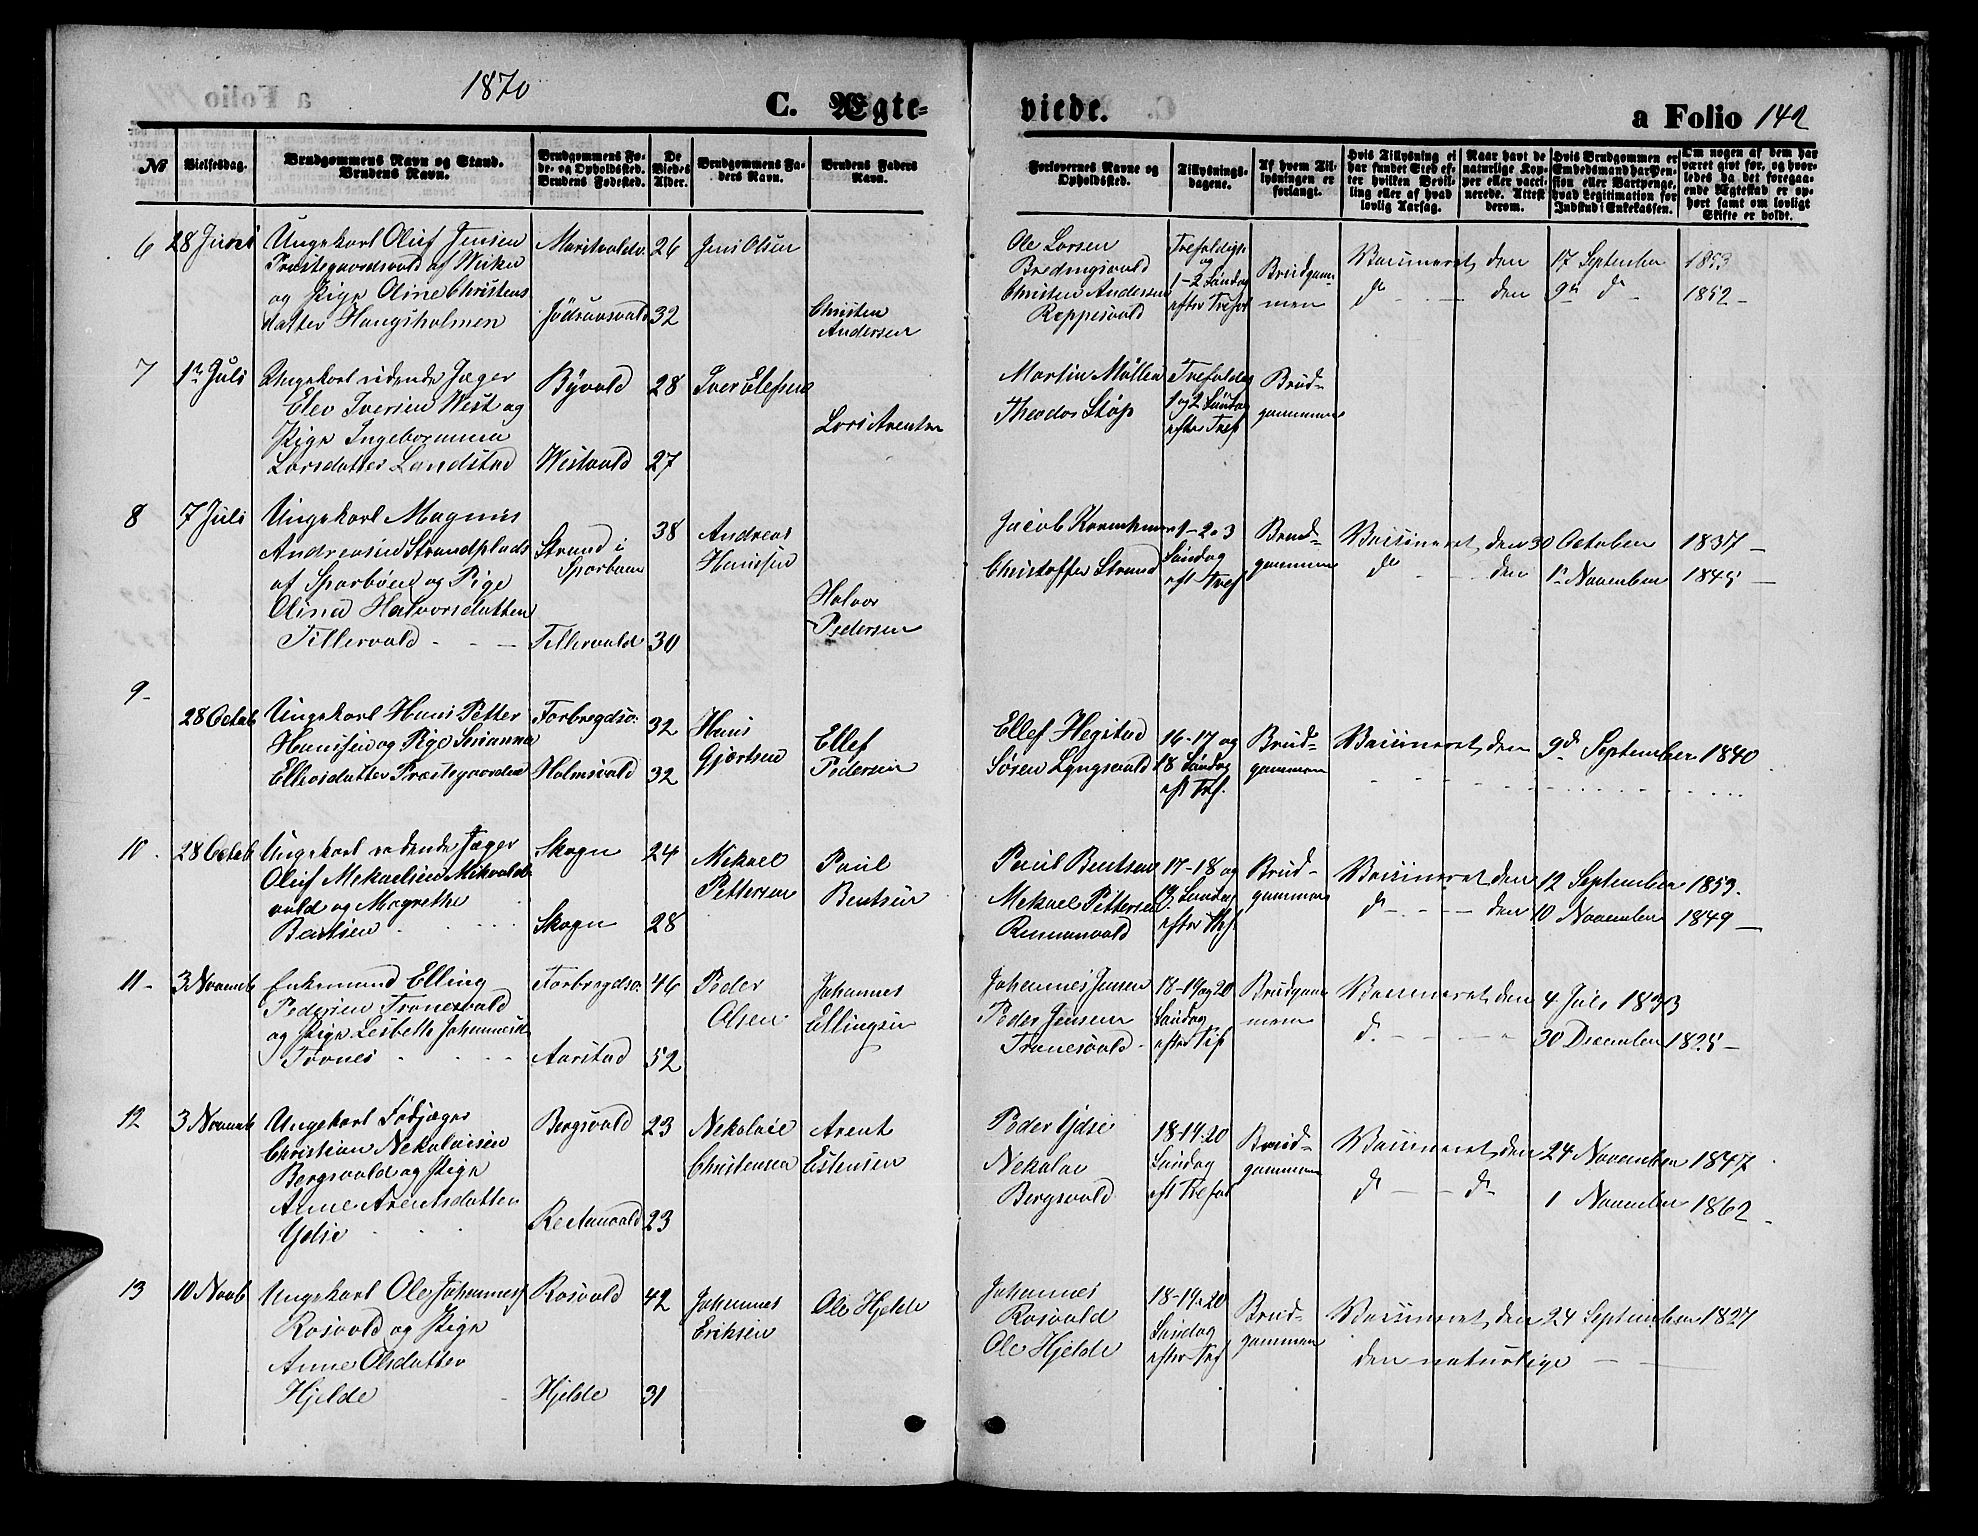 1870
C. Ægte-
viede.
a Folio 142
No
Vielsesdag.
Brudgommens Navn og Stand.
Brudens Navn.
Brudgommens Fø-
de- og Opholdssted.
Brudens Fødested.
De
Viedes
Alder.
Brudgommens Fa-
ders Navn.
Brudens Faders
Navn.
Forlovernes Navne og
Opholdssted.
Tillysnings-
dagene.
Af hvem Til-
lysningen er
forlangt.
Hvis Tillysning ei
har fundet Sted ef-
ter hvilken Bevil-
ling eller af hvad
lovlig Aarsag.
Naar havt de
naturlige Kop-
per eller vacci-
nerede. Attest
derom.
Hvis Brudgommen er
Embedsmand har Pen-
sion eller Vartpenge,
hvad Legitimation for
Indskud i Enkekassen.
Om nogen af dem har
været givt før, og hvor-
ledes da det foregaa-
ende Ægteskab er op-
hørt samt om lovligt
Skifte er holdt.
6 28 Juni Ungekarl Oluf Jensen
Præstegaardsvald af
og Pige Oline Christens
datter Hangsholmen
26
32
Jens Olsen
Christen
Andersen
Ole Larsen
Christen Andersen
Reppesvald
1-2 Søndag
efter Trefol
Brudgom-
men
Vaccineret den 17 September 1853
do - - den 9de do - 1852 -
7 1te Juli Ungekarl ridende Jæger
Elev Iversen West og
Pige
Larsdatter Landstad
Byvald 28
Westvald 27
Iver Elefsen
Lars Arentsen
Martin Møllen
Theodor Støp
1 og 2 Søndag
efter Tref
Brud-
gommen
8 7 Juli Ungekarl Magnus
Andreasen Strandplads
af Sparboen og Pige
Olina Halvorsdatter
Tillervald - - -
Strand i
Sparboen
38
Tillervald 30
Andreas
Hansen
Halvor
Pedersen
Jacob
Christoffer Strand
1-2 o 3
Søndag
eft Tref
Brud-
gommen
Vaccineret den 30 October 1837 -
do - - den 1te November 1845 -
9 -
28 Octob Ungekarl Hans Petter
Hanssen og Pige Serianna
Ellevsdatter Præstegaarden
32
Holmsvald 32
Hans
Gjertsen
Ellef
Pedersen
Ellef Hegstad
Søren Lyngsvald
16-17 og
18 Søndag
eft Tref.
Brud-
gommen
Vaccineret den 9de September 1840
10 28 Octob Ungekarl ridende Jæger
Oluf Mekaelsen
vald og Magrethe
Bentsen
Skogn 24
Skogn 28
Mekael
Pettersen
Paul
Bentsen
Paul Bentsen
Mekael Pettersen
17-18 og
19 Søndag
efter Tref.
Brud-
gommen
Vaccineret den 12 September 1853.
do - - den 10 November 1849 -
11 - 3 Novemb Enkemand Elling
Pedersen Tronesvald
og Pige Lesbeth Johannesd
46
Aarstad 52
Peder
Olsen
Johannes
Ellingsen
Johannes Jensen
Peder Jensen
Tronesvald
18-19 og 20
Søndag
Brudgom-
men
Vaccineret den 4 Juli 1833
do - - - 30 December 1825 -
12 3 Novemb Ungekarl Fodjæger
Christian Nekolaisen
Bergsvald og Pige
Anne Arentsdatter
Ydsie
Bergsvald 23
23
Nekolaie
Christensen
Arent
Estensen
Peder Ydsie
Nekolai
Bergsvald
18-19-20
Søndag
eft Trefol
Brud-
gommen
Vaccineret den 24 November 1847
do - - do 1 November 1862 -
13 10 Novb Ungekarl Ole Johannes
Rosvald og Pige
Anne Olsdatter
Hjelde
Rosvald 42
Hjelde 31
Johannes
Eriksen
Ole Hjelde
Johannes
Rosvald
Ole Hjelde
18-19-20
Søndag
efter Tref
Brud-
gommen
Vaccineret den 24 September 1827
den naturlige - -